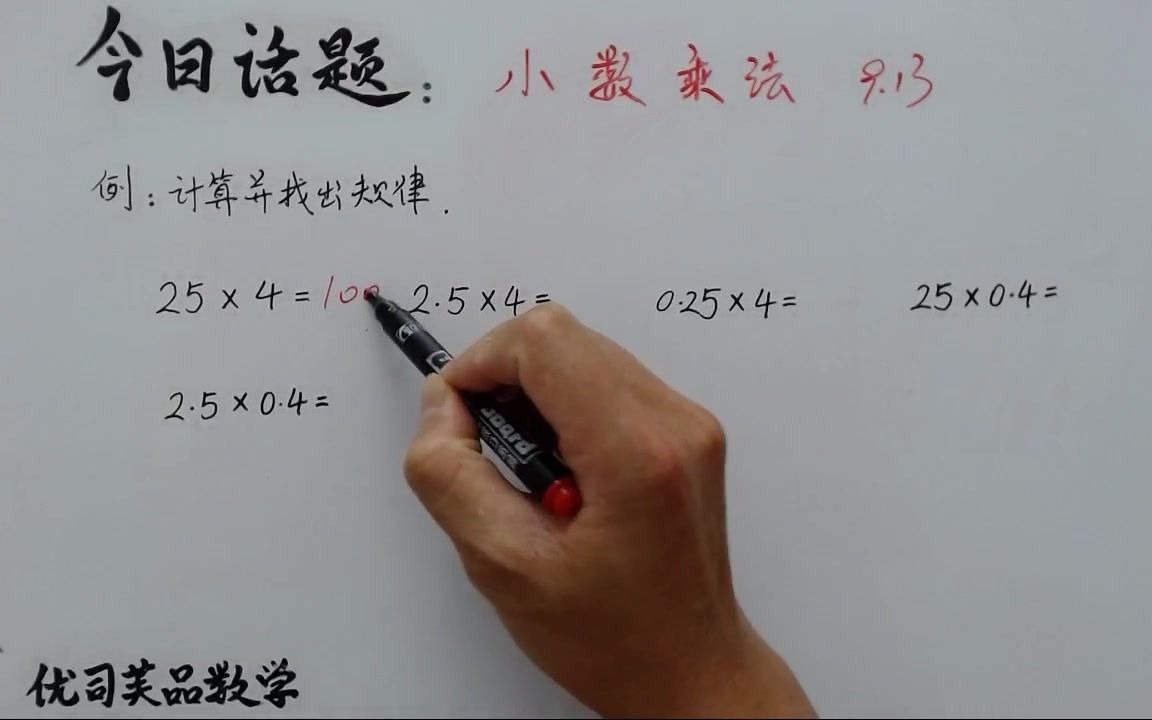 今日话题: 小数乘法 9.13
例:计算并找出规律.
25×4=100 2.5×4= 0.25×4= 25×0.4=
2.5×0.4=
优司芙品数学